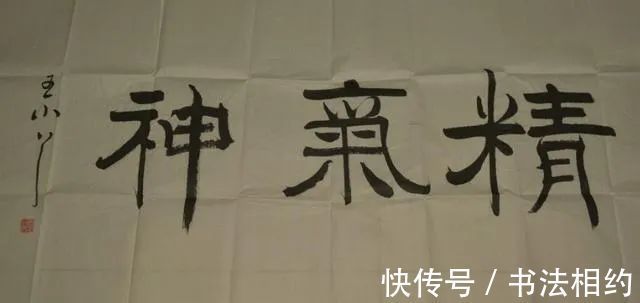 精氣神
王小丫
快传号/书法相约